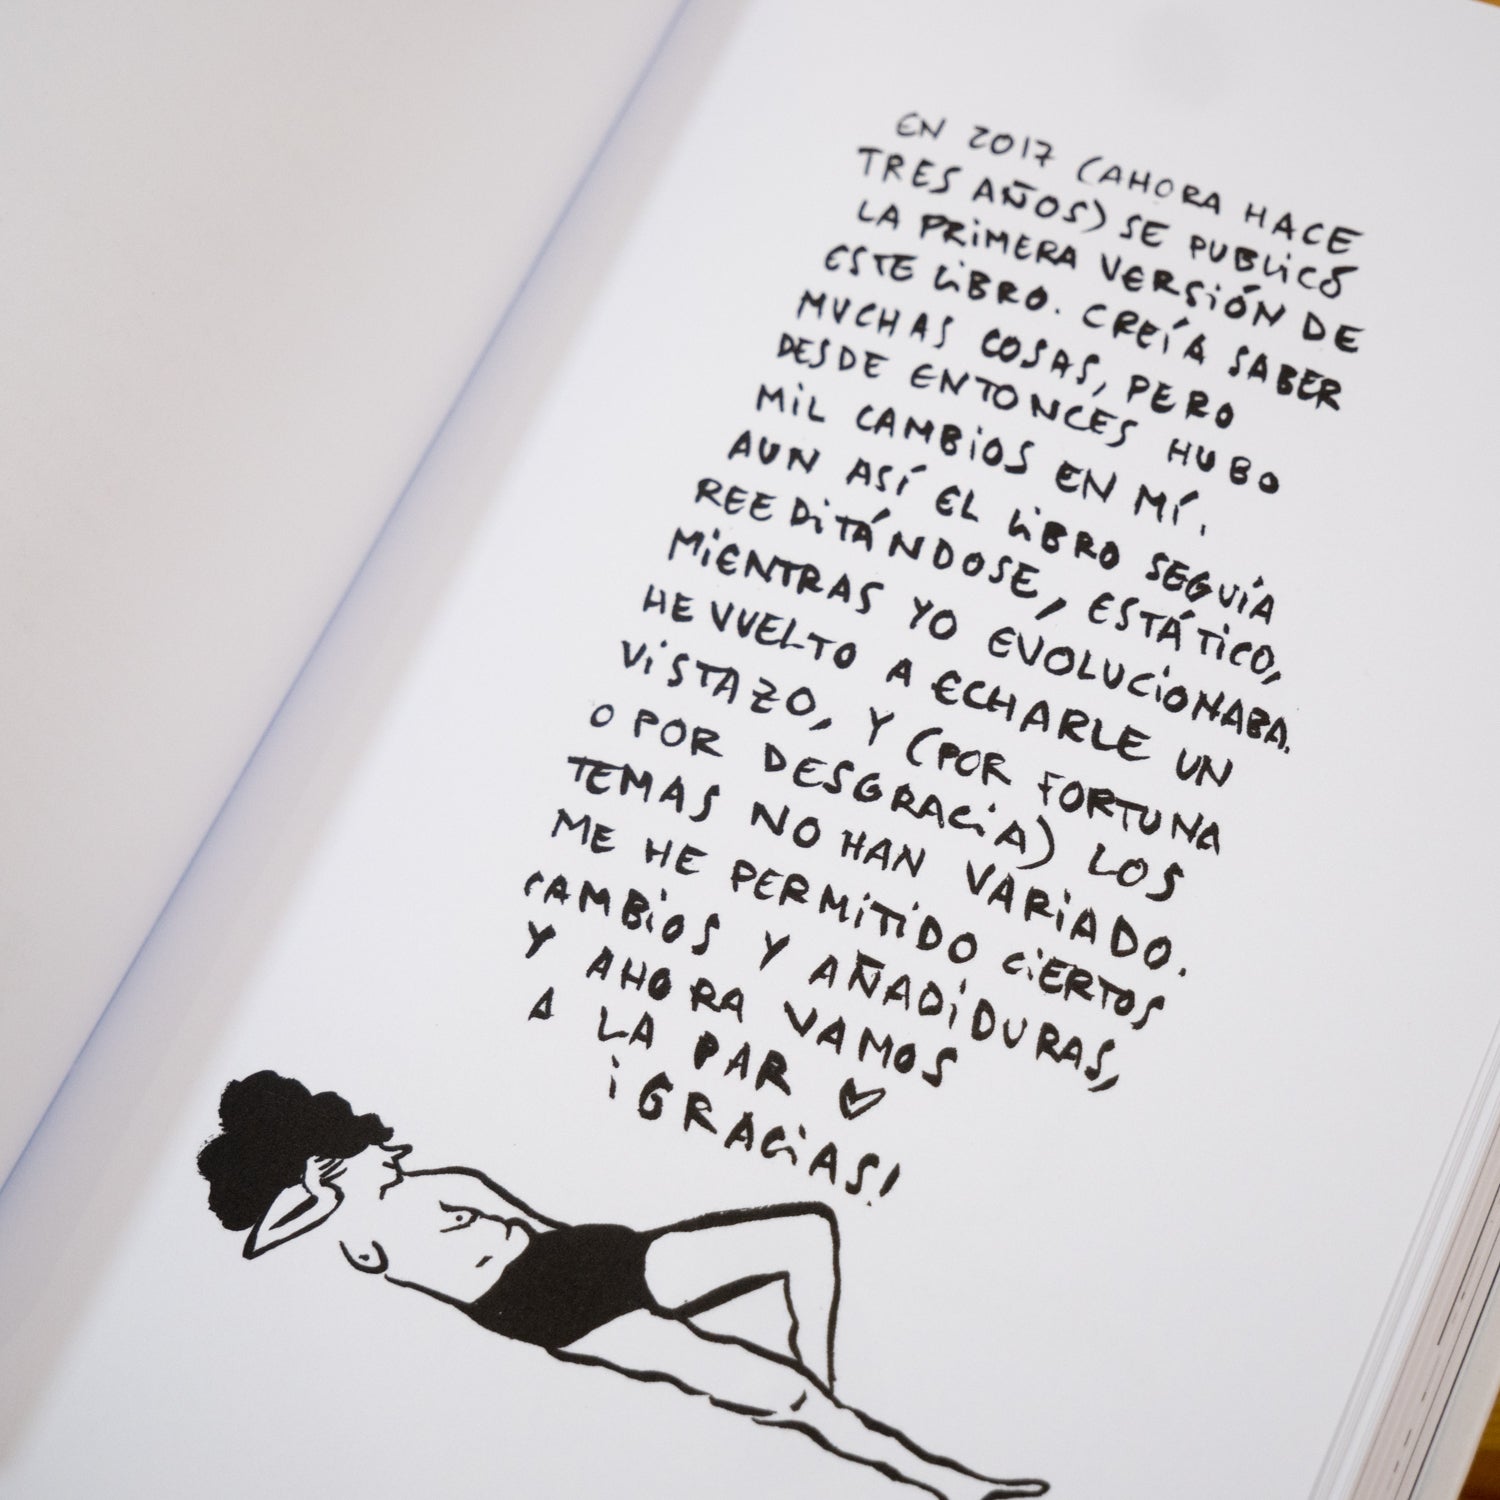 EN 2017 (AHORA HACE
TRES AÑOS) SE PUBLICÓ
LA PRIMERA VERSIÓN DE
ESTE LIBRO. CREÍA SABER
MUCHAS COSAS, PERO
DESDE ENTONCES HUBO
MIL CAMBIOS EN MÍ.
AUN ASÍ EL LIBRO SEGUÍA
REEDITÁNDOSE, ESTÁTICO,
MIENTRAS YO EVOLUCIONABA.
HE VUELTO A ECHARLE UN
VISTAZO, Y (POR FORTUNA
O POR DESGRACIA) LOS
TEMAS NO HAN VARIADO.
ME HE PERMITIDO CIERTOS
CAMBIOS Y AÑADIDURAS,
Y AHORA VAMOS
A LA PAR ♡
¡GRACIAS!